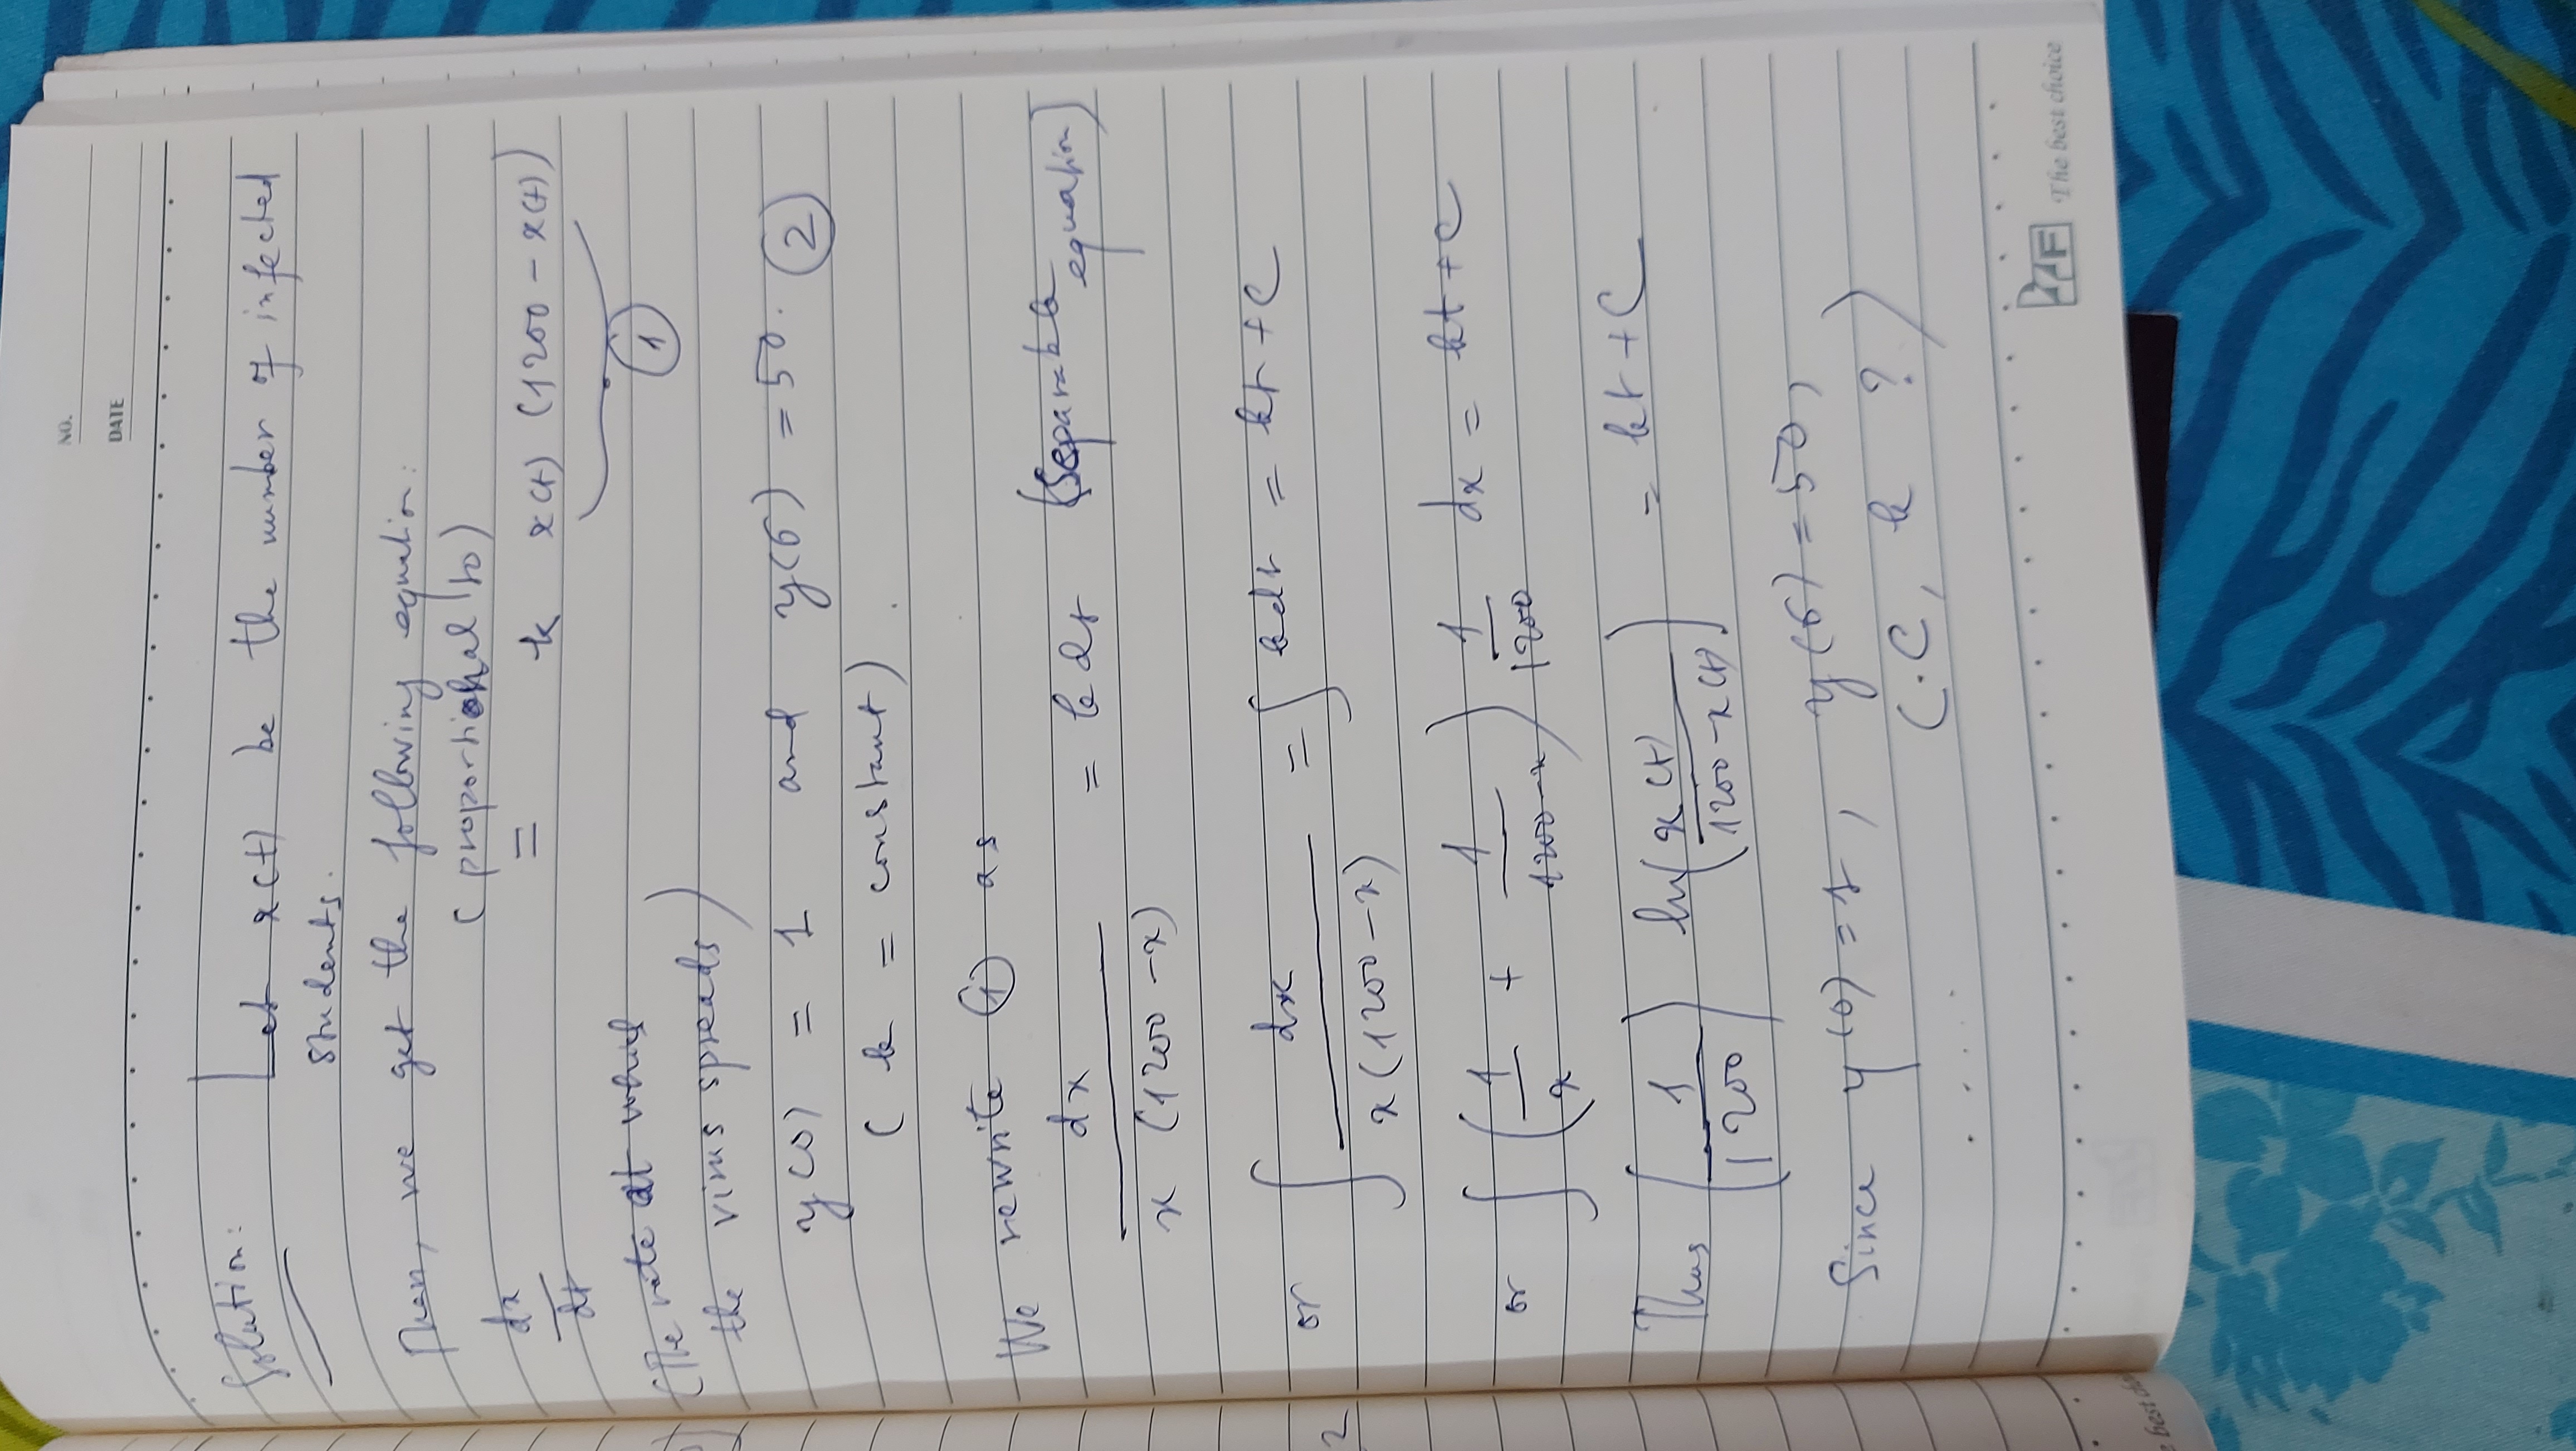 NO.
DATE
Solution: Let x(t) be the number of infected
students.
Then, we get the following equation:
(proportional to)
dx/dt = k x(t) (1200 - x(t))
1
(The rate at which
the virus spreads)
y(0) = 1 and y(6) = 50. 2
(k = constant).
We rewrite 1 as
dx / x (1200 - x) = k dt (Separable equation)
or ∫ dx / x(1200 - x) = ∫ k dt = kt + C
or ∫ (1/x + 1/1200-x) 1/1200 dx = kt + C
Thus (1/1200) ln(x(t)/1200-x(t)) = kt + C
Since y(0) = 1, y(6) = 50,
(C, k ?)
.....
The best choice
2
best